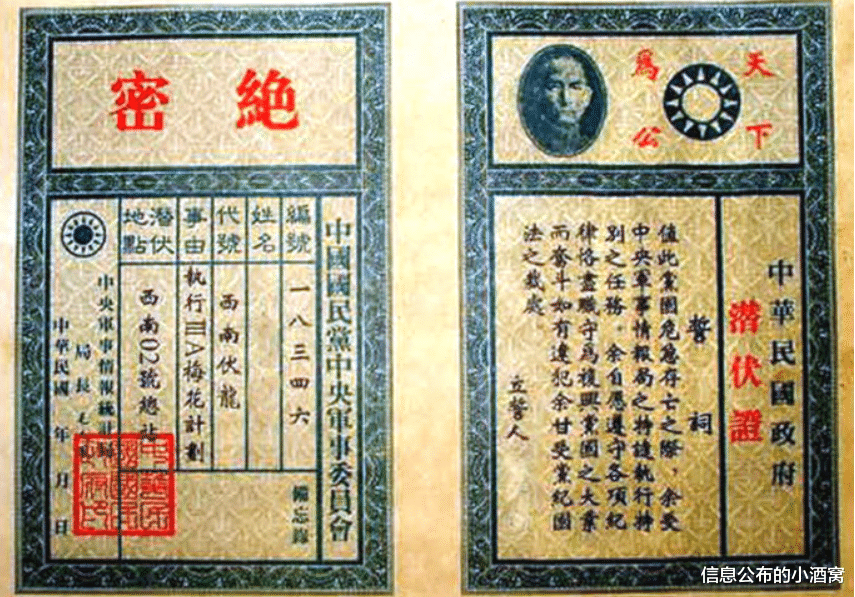 天下
爲公
中華民國政府
潜伏證
誓詞
值此黨國危急存亡之際，余受
中央軍事情報局之特遣執行特
別之任務。余自愿遵守各項紀
律恪盡職守爲複興黨國之大業
而奮斗如有違犯余甘受黨紀國
法之裁處。
立誓人
絶密
中國國民黨中央軍事委員會
備忘錄
編號 一八三四六
姓名
代號 西南伏龍
事由 執行ⅢA梅花計劃
潜伏地點 西南02號總站
中央軍事情報統計局
局長
中華民國 年 月 日
信息公布的小酒窝